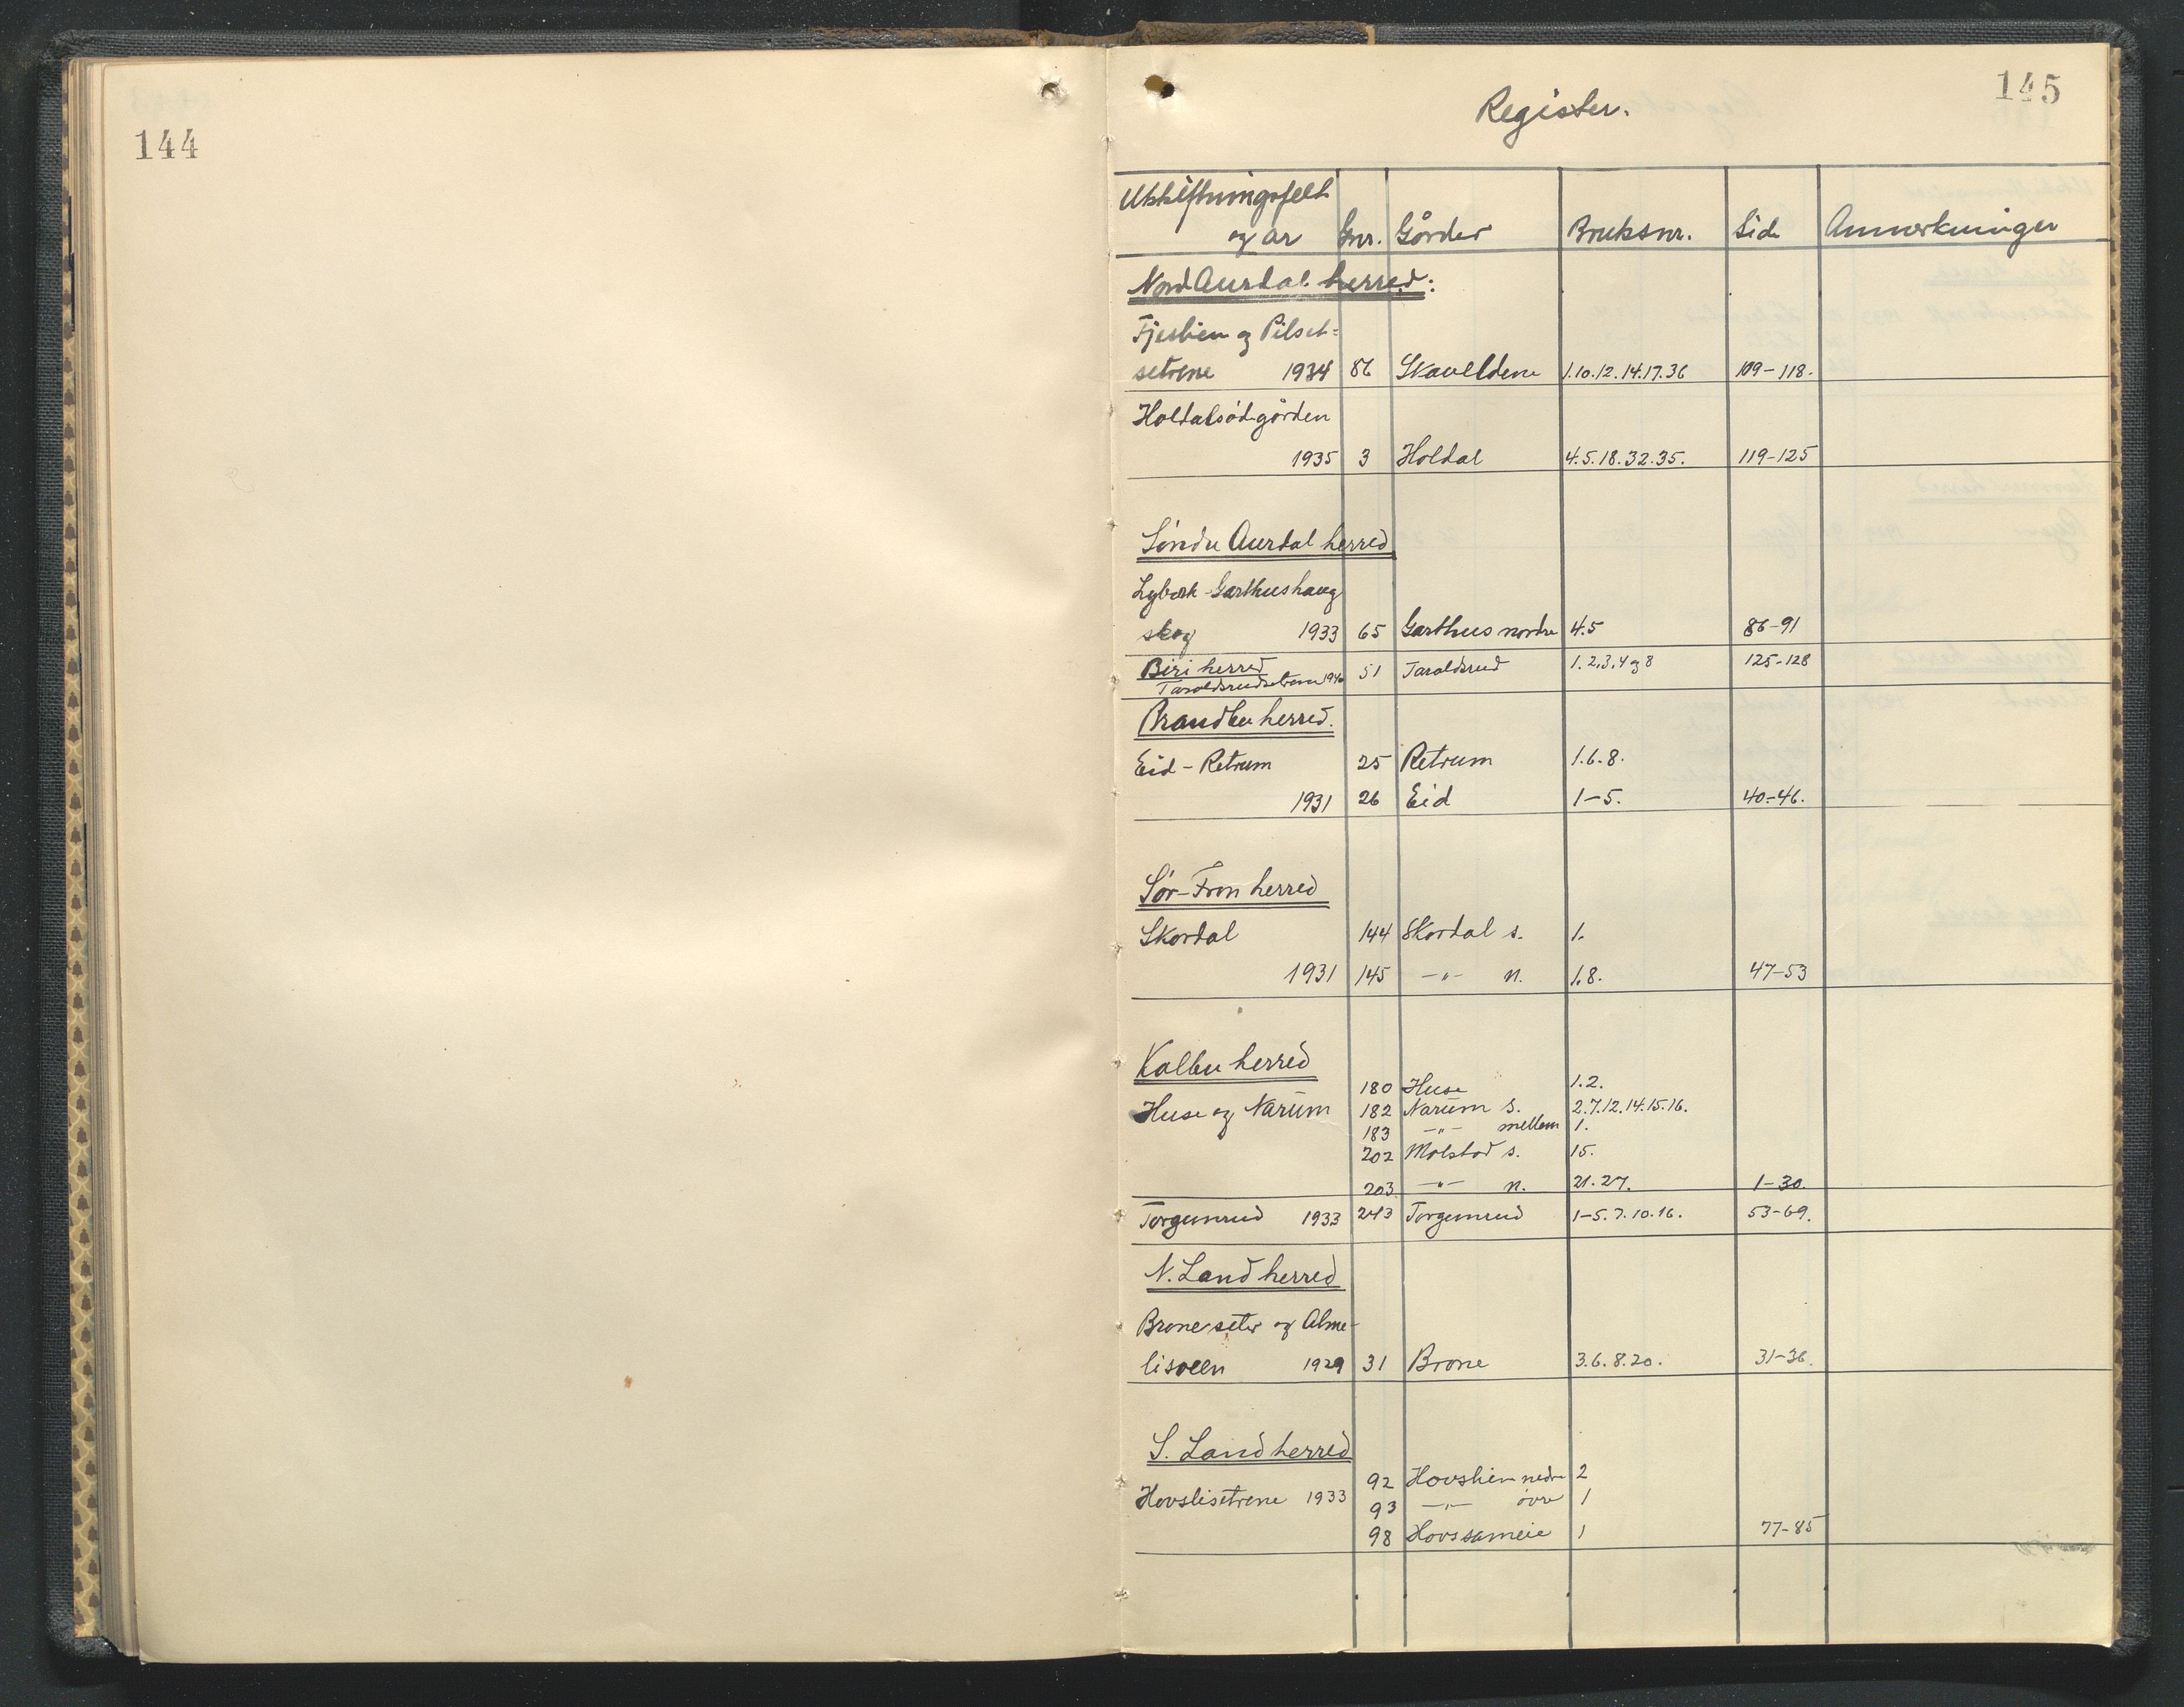 144
145
Register.
Utskiftningsfelt
og år Gnr. Gårder Bruksnr. Side Anmerkninger
Nord Aurdal herred:
Fjeslien og Pilset-
setrene 1934 86 Skavelden 1.10.12.14.17.36 109-118.
Holdalsødegården
1935 3 Holdal 4.5.18.32.35. 119-125
Søndre Aurdal herred
Garthushaug
skog 1933 65 Garthus nordre 4.5 86-91
Biri herred 51 Taraldsrud 1.2.3.4 og 8 125-128
Taraldsrudsetrene 1940
Brandbu herred.
Eid - Retrum 25 Retrum 1.6.8.
1931 26 Eid 1-5. 40-46.
Sør-Fron herred
Skordal 144 Skordal s. 1.
1931 145 -"- n. 1.8. 47-53
Kolbu herred
180 Huse 1.2.
Huse og Narum 182 Narum s. 2.7.12.14.15.16.
183 -"- mellem 1.
202 Molstad s. 15.
203 -"- n. 21.27. 1-30.
Torgunrud 1933 243 Torgunrud 1-5.7.10.16. 53-69.
N. Land herred
Brone seter og Alme-
lisveen 1929 31 Brone 3.6.8.20. 31-36.
S. Land herred
92 Hovslien nedre 2
Hovslisetrene 1933
93 -"- øvre 1
98 Hovssameie 1 77-85